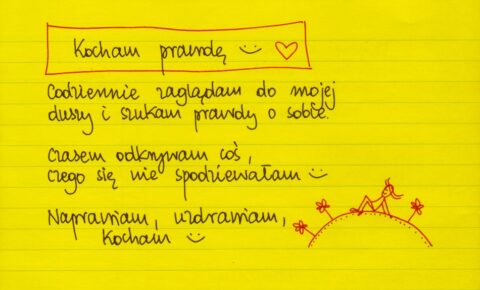 Kocham prawdę :) ♡
Codziennie zaglądam do mojej
duszy i szukam prawdy o sobie.
Czasem odkrywam coś,
czego się nie spodziewałam :)
Naprawiam, uzdrawiam,
Kocham :)